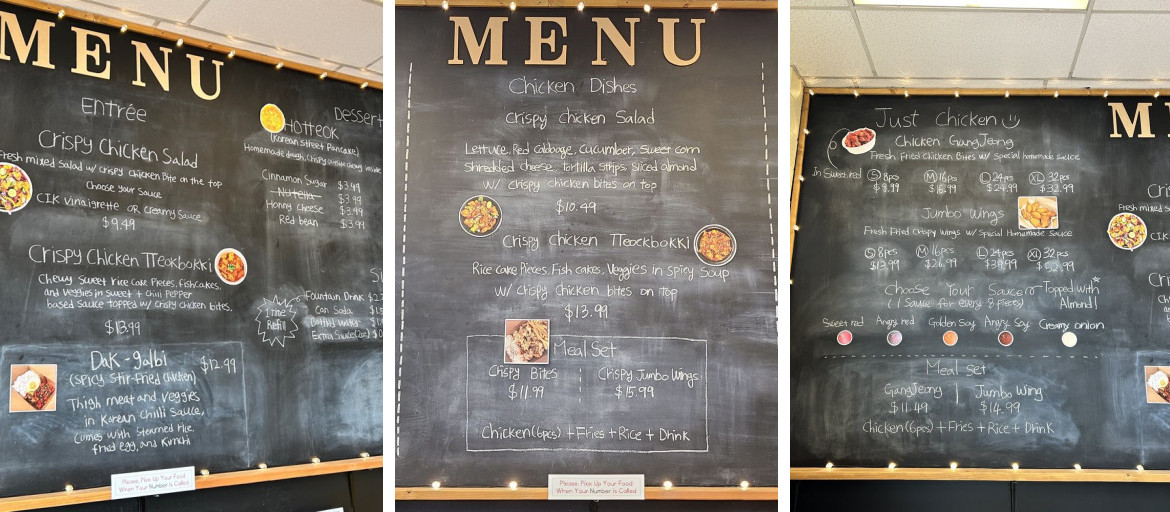 MENU
Entrée
Crispy Chicken Salad
Fresh mixed salad w/ crispy chicken Bite on the top
Choose your Sauce
CIK vinaigrette OR creamy Sauce
$9.49
Crispy Chicken TTeokbokki
Chewy Sweet rice cake Pieces, Fishcakes,
and veggies in sweet + chili PePPer
based sauce topped w/ crispy chicken bites.
$13.99
Dak-galbi $12.99
(spicy stir-fried chicken)
Thigh meat and veggies
in Korean Chilli Sauce,
Comes with Steamed rice,
fried egg, and Kimchi
Dessert
Hotteok
(Korean street Pancake)
Homemade dough, crispy outside chewy inside
Cinnamon Sugar $3.99
Nutella
Honny cheese $3.99
Red bean $3.99
1 time Refill
Fountain Drink
Can Soda
Bottled water
Extra Sauce(2oz)
Please, Pick Up Your Food
When Your Number is Called
MENU
Chicken Dishes
Crispy Chicken Salad
Lettuce, Red Cabbage, Cucumber, Sweet corn
shredded cheese, Tortilla strips, sliced almond
W/ crispy chicken bites on top
$10.49
Crispy Chicken TTeockbokki
Rice cake Pieces, Fish cakes, Veggies in Spicy Soup
W/ crispy chicken bites on top
$13.99
Meal Set
Crispy Bites Crispy Jumbo Wings
$11.99 $15.99
Chicken(6pcs) + Fries + Rice + Drink
Please, Pick Up Your Food
When Your Number is Called
Just Chicken
Chicken GangJeong
Fresh Fried Chicken Bites w/ Special homemade sauce
In Sweet red
S 8pcs M 16pcs L 24pcs XL 32pcs
$8.99 $16.99 $24.99 $32.99
Jumbo Wings
Fresh Fried Crispy Wings w/ Special Homemade Sauce
S 8pcs M 16pcs L 24pcs XL 32pcs
$13.99 $26.99 $39.99 $52.99
Choose Your Sauce Topped with
(1 Sauce for every 8 pieces) Almond!
Sweet red Angry red Golden Soy Angry Soy Creamy onion
Meal Set
GangJeong Jumbo Wing
$11.49 $14.99
Chicken(6pcs) + Fries + Rice + Drink